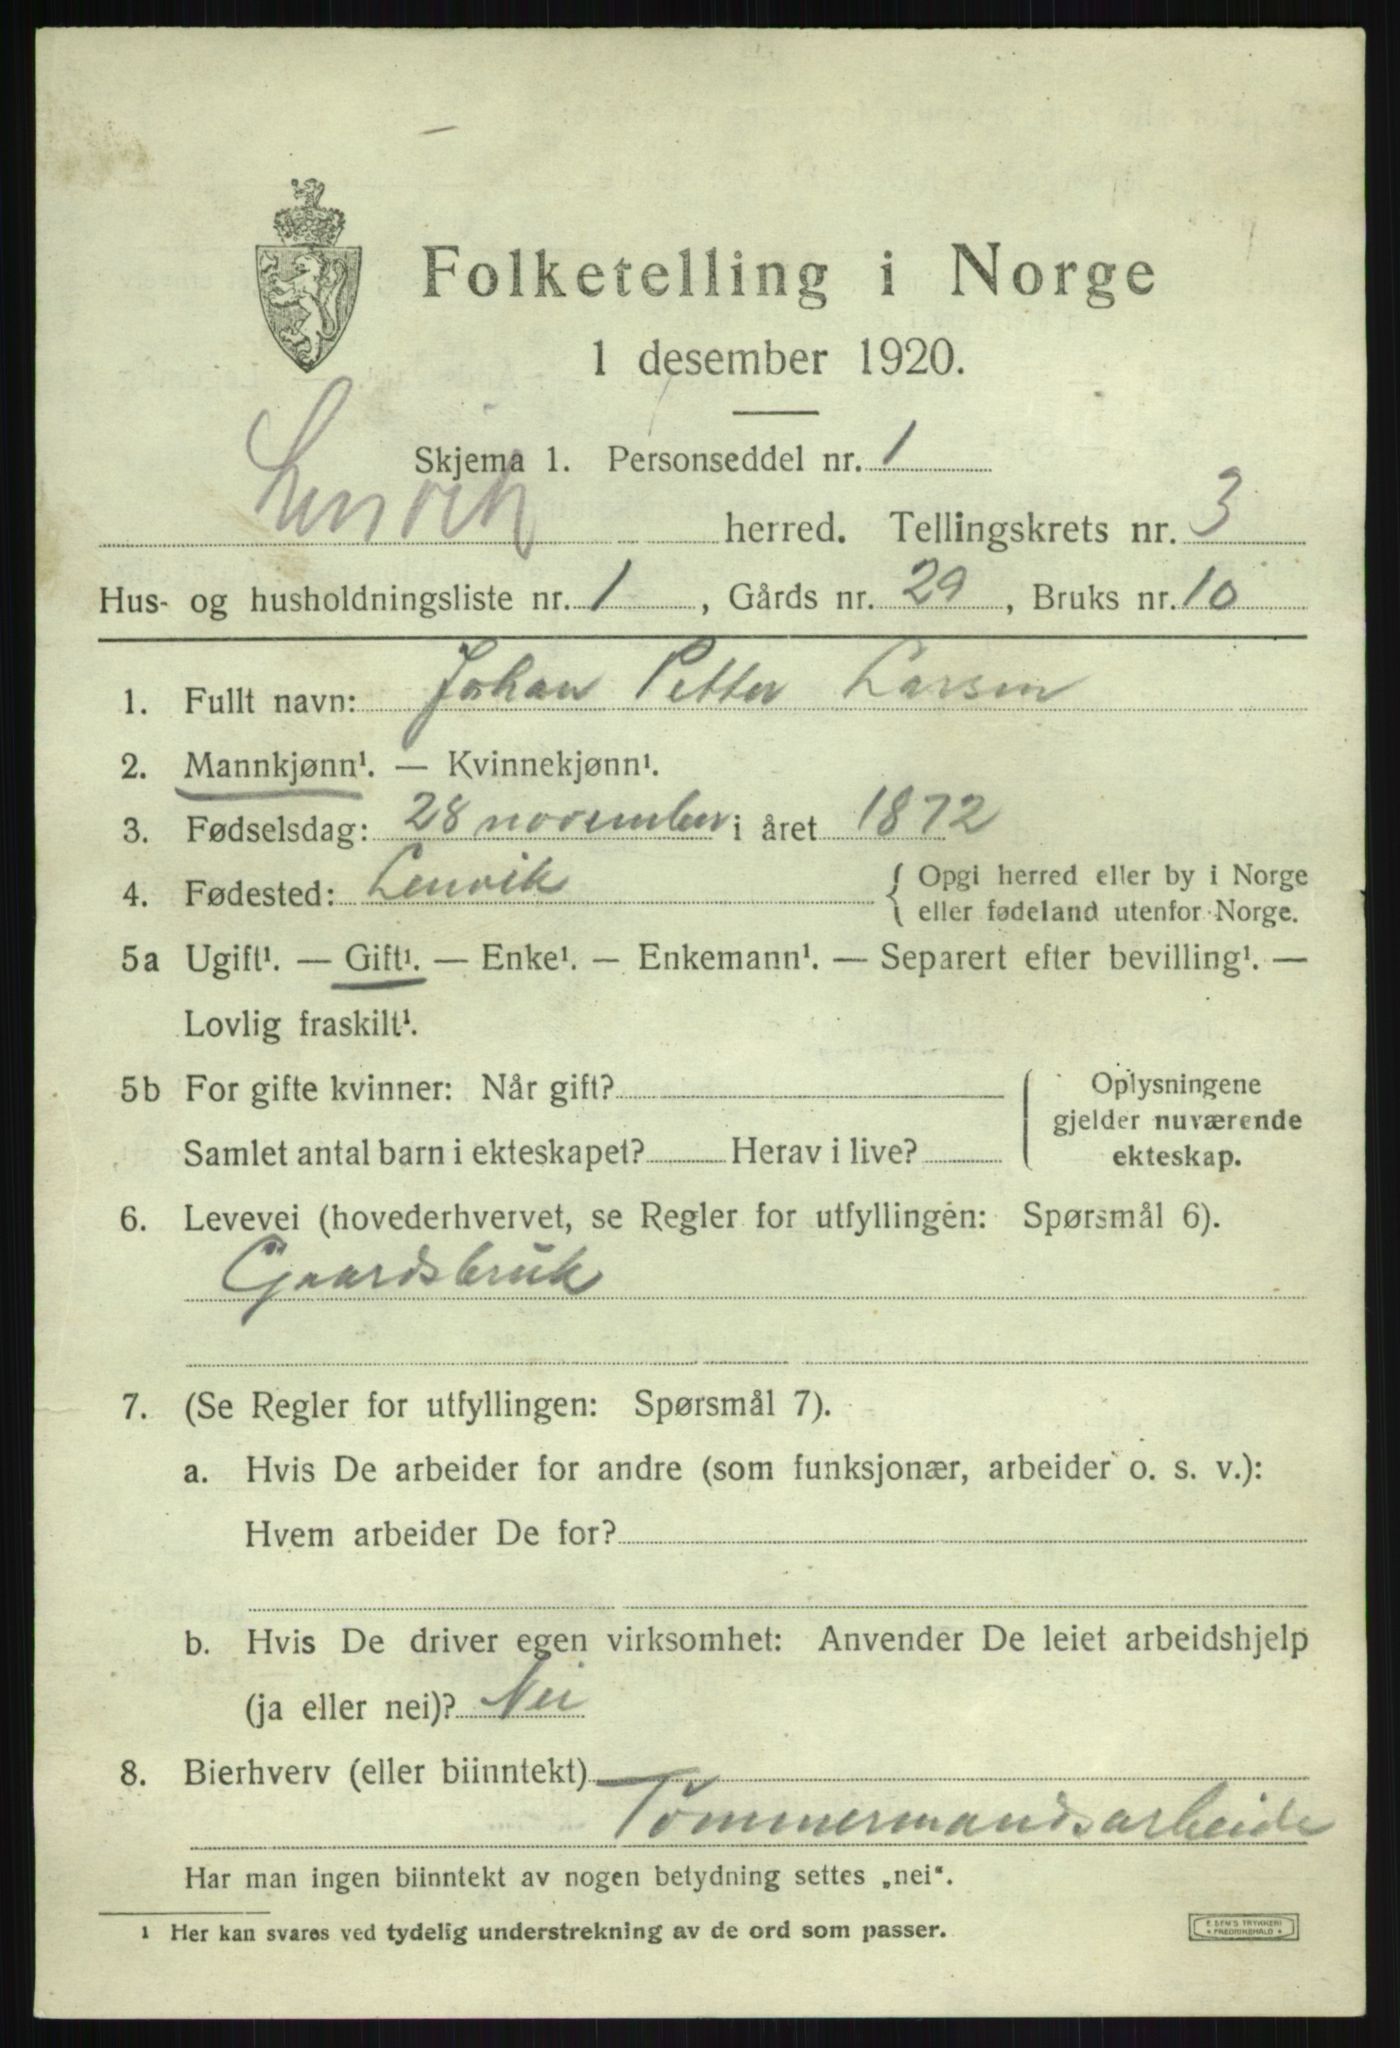 Folketelling i Norge
1 desember 1920.
Skjema 1. Personseddel nr. 1
Lenvik herred. Tellingskrets nr. 3
Hus- og husholdningsliste nr. 1, Gårds nr. 29, Bruks nr. 10
1. Fullt navn: Johan Petter Larsen
2. Mannkjønn¹. — Kvinnekjønn¹.
3. Fødselsdag: 28 november i året 1872
4. Fødested: Lenvik { Opgi herred eller by i Norge
eller fødeland utenfor Norge.
5a Ugift¹. — Gift¹. — Enke¹. — Enkemann¹. — Separert efter bevilling¹. —
Lovlig fraskilt¹.
5b For gifte kvinner: Når gift?
Samlet antal barn i ekteskapet? Herav i live?
Oplysningene
gjelder nuværende
ekteskap.
6. Levevei (hovederhvervet, se Regler for utfyllingen: Spørsmål 6).
Gaardsbruk
7. (Se Regler for utfyllingen: Spørsmål 7).
a. Hvis De arbeider for andre (som funksjonær, arbeider o. s. v.):
Hvem arbeider De for?
b. Hvis De driver egen virksomhet: Anvender De leiet arbeidshjelp
(ja eller nei)? Nei
8. Bierhverv (eller biinntekt)
Tømmermandsarbeide
Har man ingen biinntekt av nogen betydning settes „nei“.
¹ Her kan svares ved tydelig understrekning av de ord som passer.
E. SEM'S TRYKKERI
FREDRIKSHALD